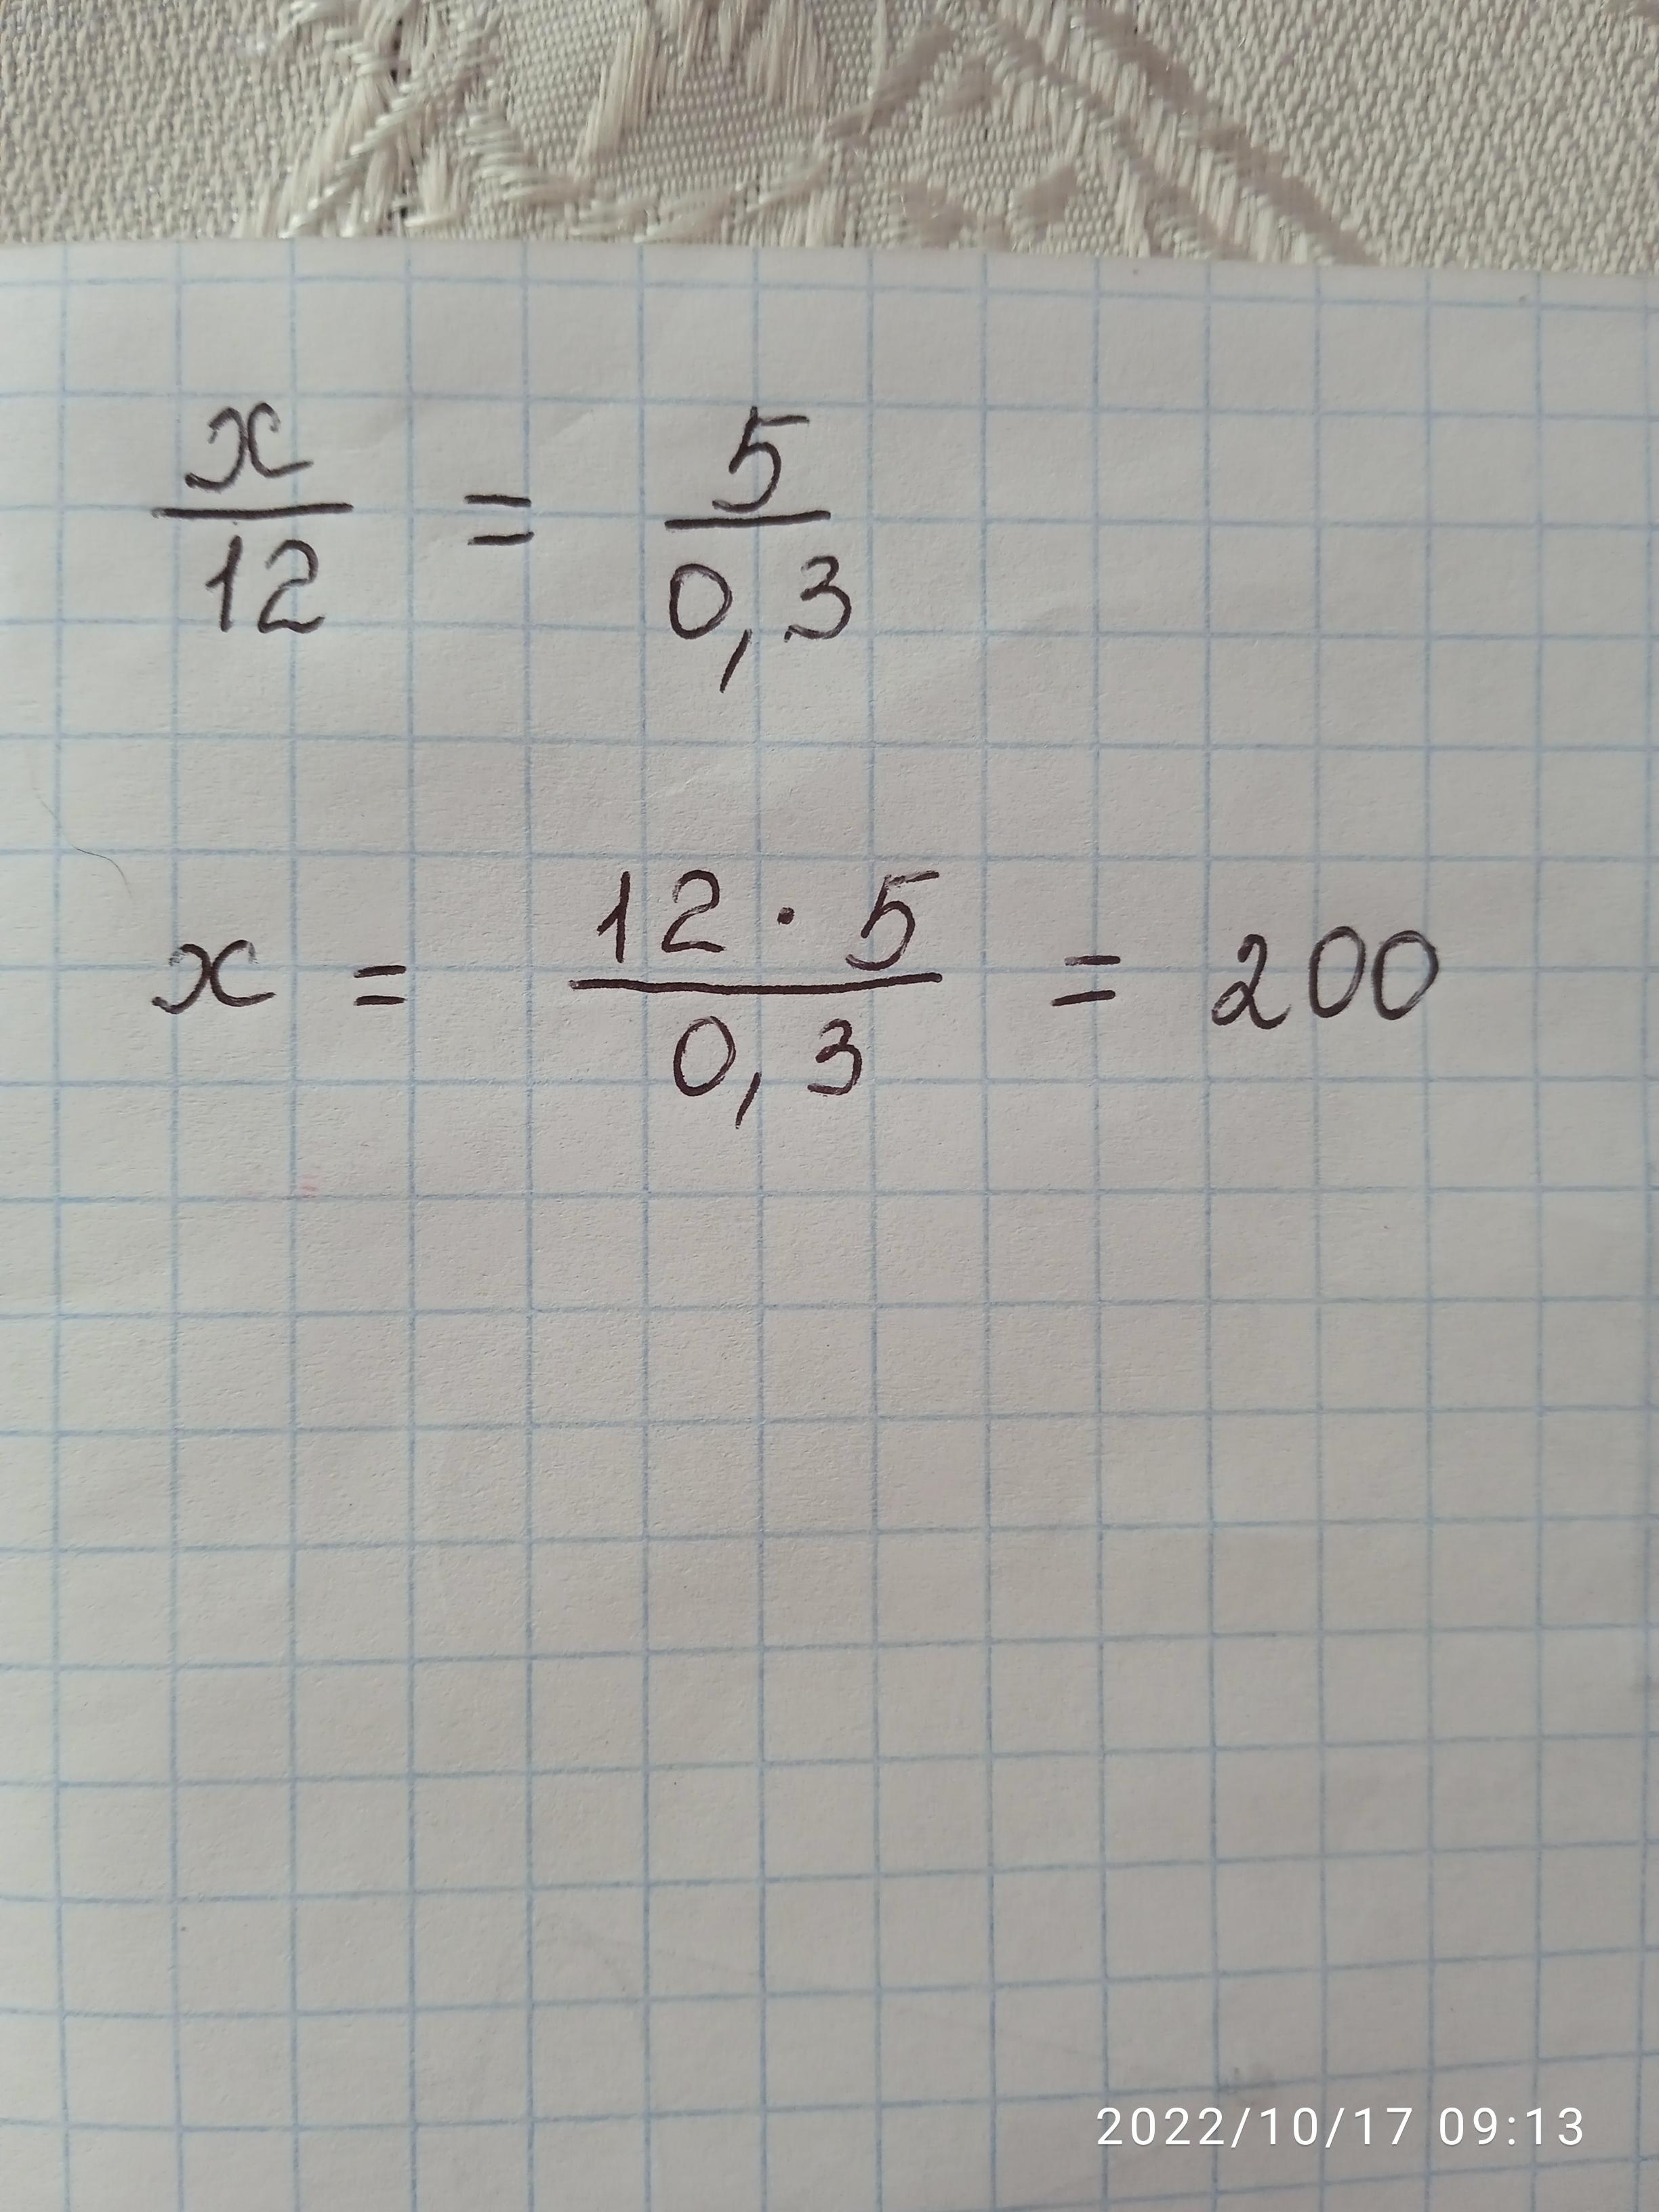 x/12 = 5/0,3
x = 12·5/0,3 = 200
2022/10/17 09:13